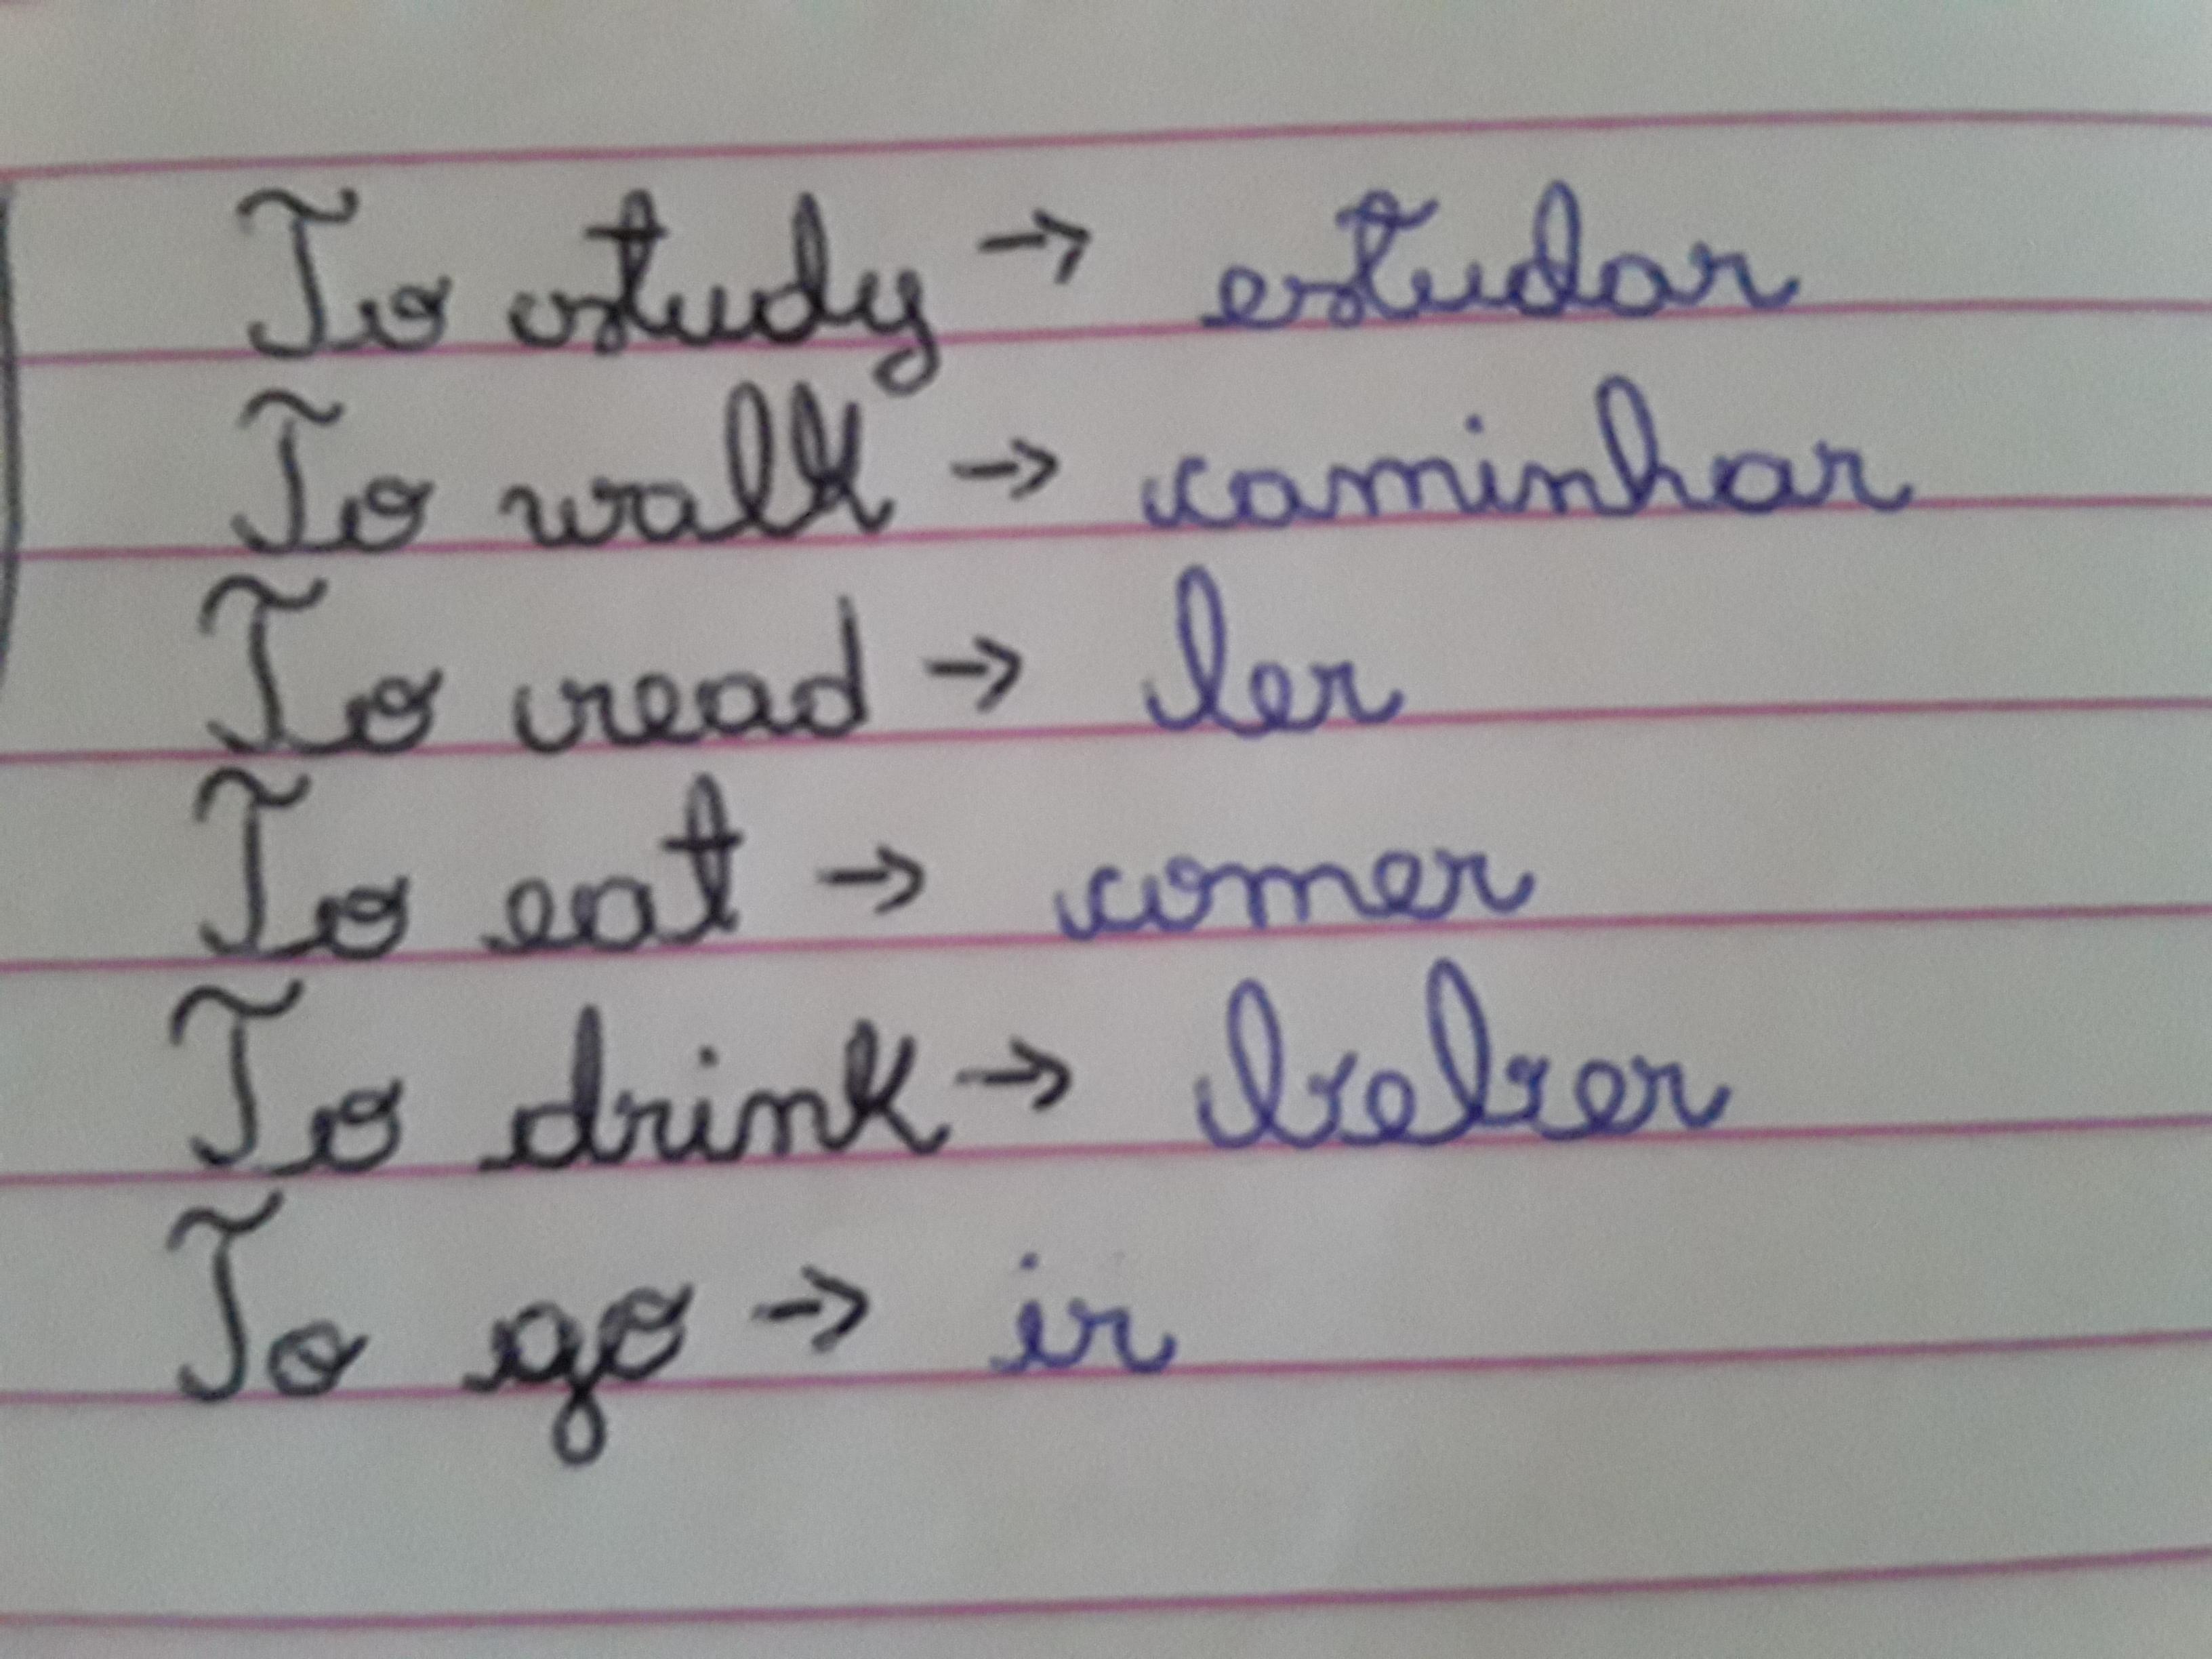 To study → estudar
To walk → caminhar
To read → ler
To eat → comer
To drink → beber
To go → ir